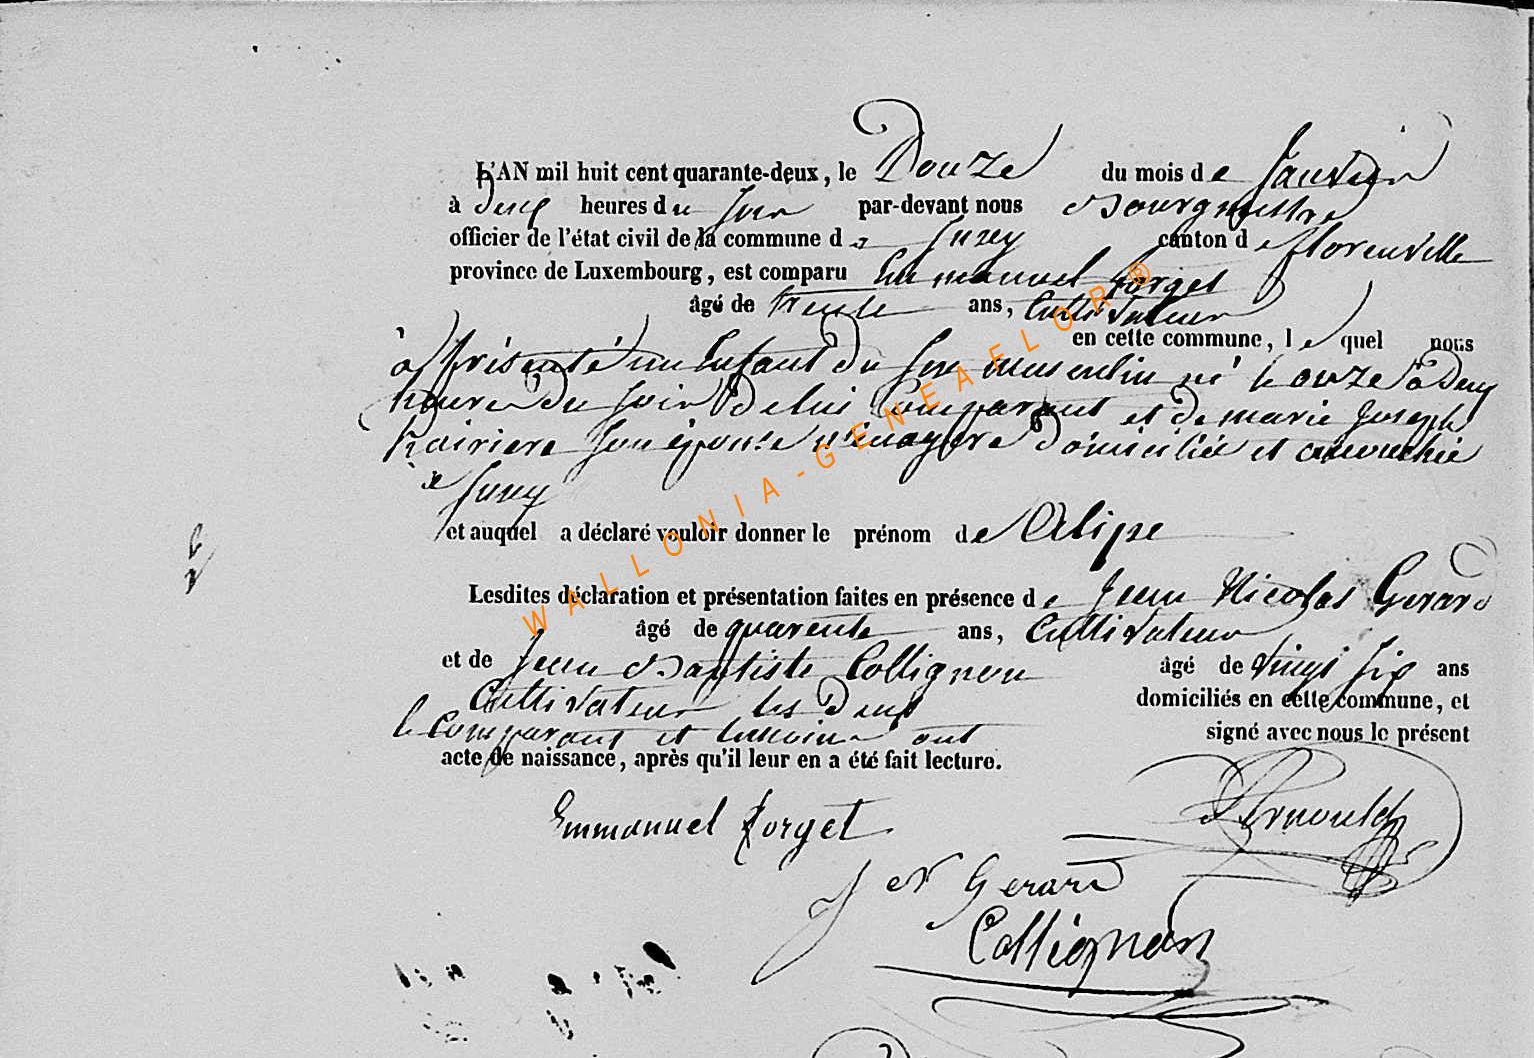 L'AN mil huit cent quarante-deux, le Douze du mois de Janvier
à deux heures du soir par-devant nous Bourgmestre
officier de l'état civil de la commune de Juzey canton de florenville
province de Luxembourg, est comparu Emmanuel forget
âgé de trente ans, Cultivateur
en cette commune, lequel nous
à présenté un Enfant du sexe masculin né le onze à Deux
heures du soir De lui Comparant et de marie Joseph
son épouse ménagère Domiciliée et accouchée
à Juzey
et auquel a déclaré vouloir donner le prénom de Alipe
Lesdites déclaration et présentation faites en présence de Jean Nicolas Gerard
âgé de quarente ans, Cultivateur
et de Jean Baptiste Collignon âgé de vingt six ans
Cultivateur les Deux domiciliés en cette commune, et
le Comparant et temoins ont signé avec nous le présent
acte de naissance, après qu'il leur en a été fait lecture.
Emmanuel forget
J N Gerard
Collignon
WALLONIA-GENEAELOR®